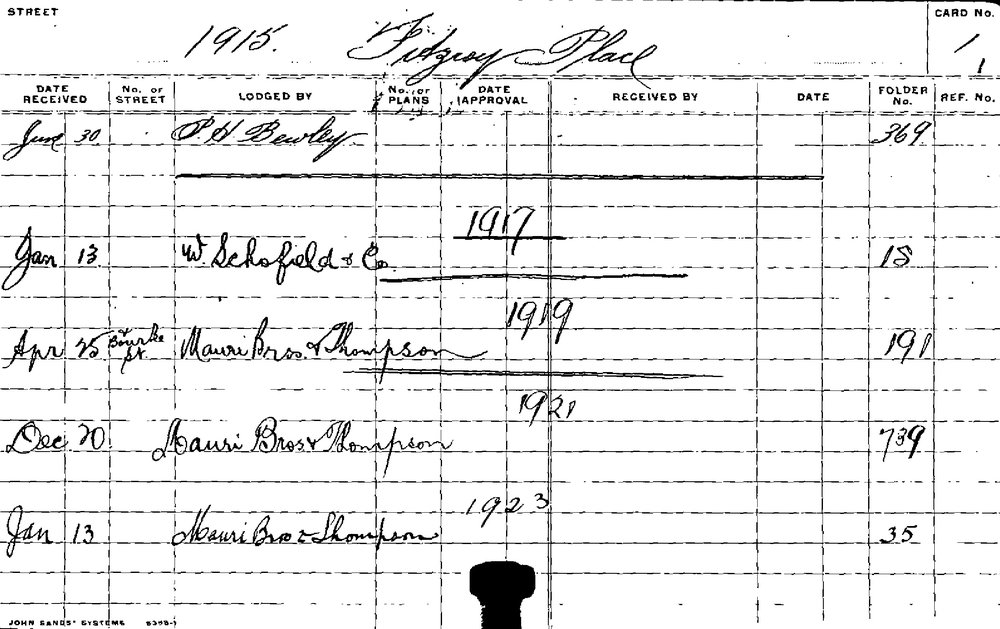 STREET
CARD No.
1915. Fitzroy Place
1
1
DATE RECEIVED No. OF STREET LODGED BY No. OF PLANS DATE APPROVAL RECEIVED BY DATE FOLDER No. REF. No.
June 30 P. H Bewley 369
1917
Jan 13 W. Schofield & Co 18
1919
Apr 25 & Bourke St. Mauri Bros. & Thompson 191
1921
Dec 20 Mauri Bros & Thompson 739
1923
Jan 13 Mauri Bros & Thompson 35
JOHN SANDS' SYSTEMS